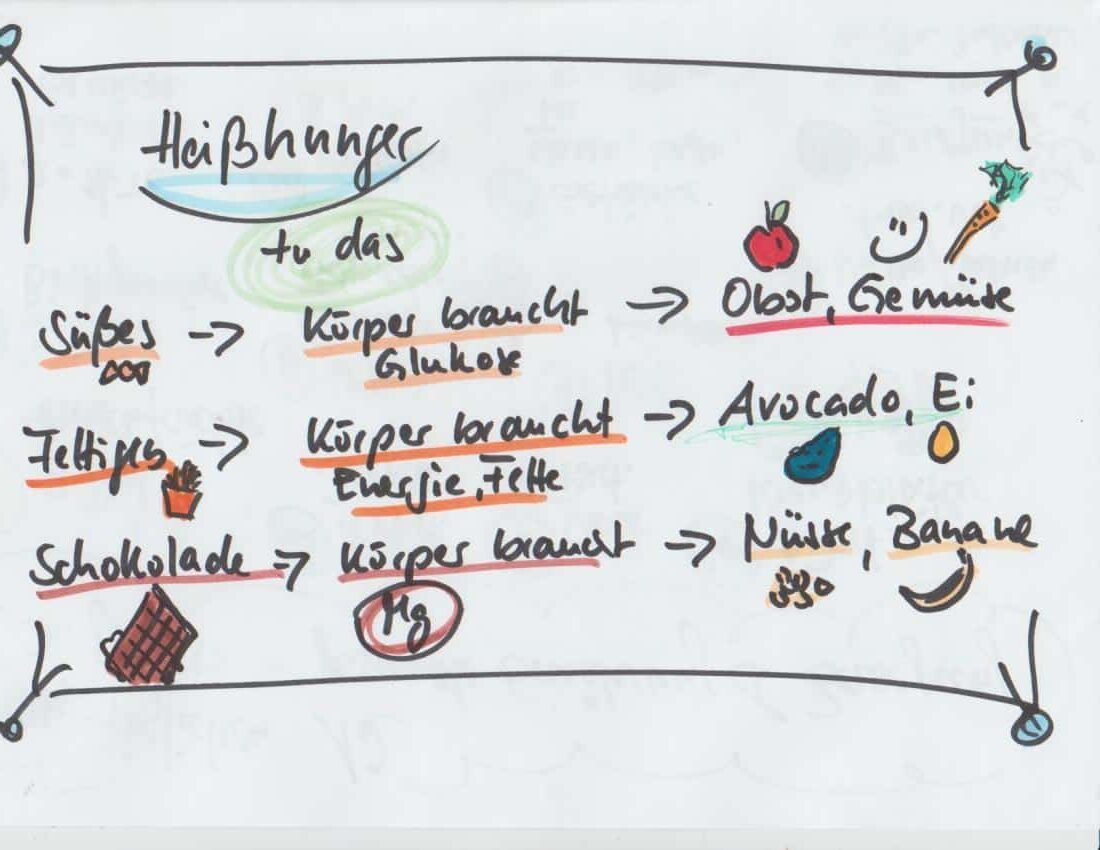 Heißhunger
tu das
Süßes → Körper braucht → Obst, Gemüse
Glukose
Fettiges → Körper braucht → Avocado, Ei
Energie, Fette
Schokolade → Körper braucht → Nüsse, Banane
Mg